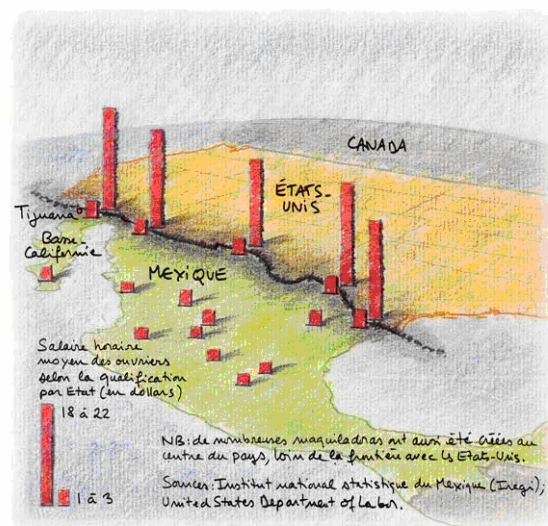 CANADA
ÉTATS-
UNIS
Tijuana
Basse-
Californie
MEXIQUE
Salaire horaire
moyen des ouvriers
selon la qualification
par Etat (en dollars)
18 à 22
1 à 3
NB: de nombreuses maquiladoras ont aussi été créées au
centre du pays, loin de la frontière avec les Etats-Unis.
Sources: Institut national statistique du Mexique (Inegi);
United States Department of Labor.